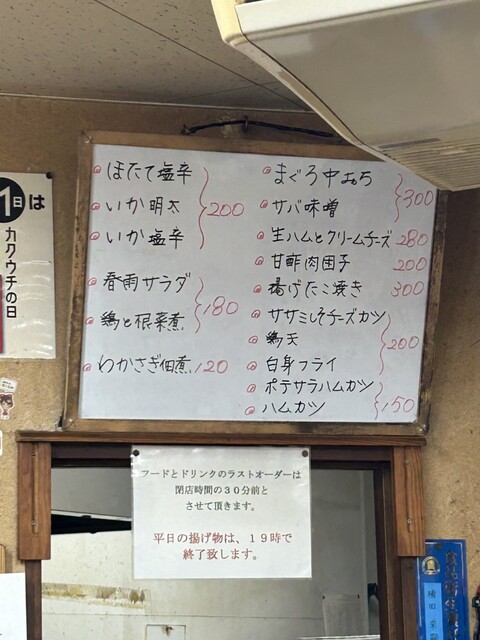 1日は
カクウチの日
ほたて塩辛
いか明太
いか塩辛
200
春雨サラダ
鶏と根菜煮
180
わかさぎ佃煮 120
まぐろ中おち
サバ味噌
300
生ハムとクリームチーズ 280
甘酢肉団子 200
揚げたこ焼き 300
ササミしそチーズカツ
鶏天
白身フライ
200
ポテサラハムカツ
ハムカツ
150
フードとドリンクのラストオーダーは
閉店時間の30分前と
させて頂きます。
平日の揚げ物は、19時で
終了致します。